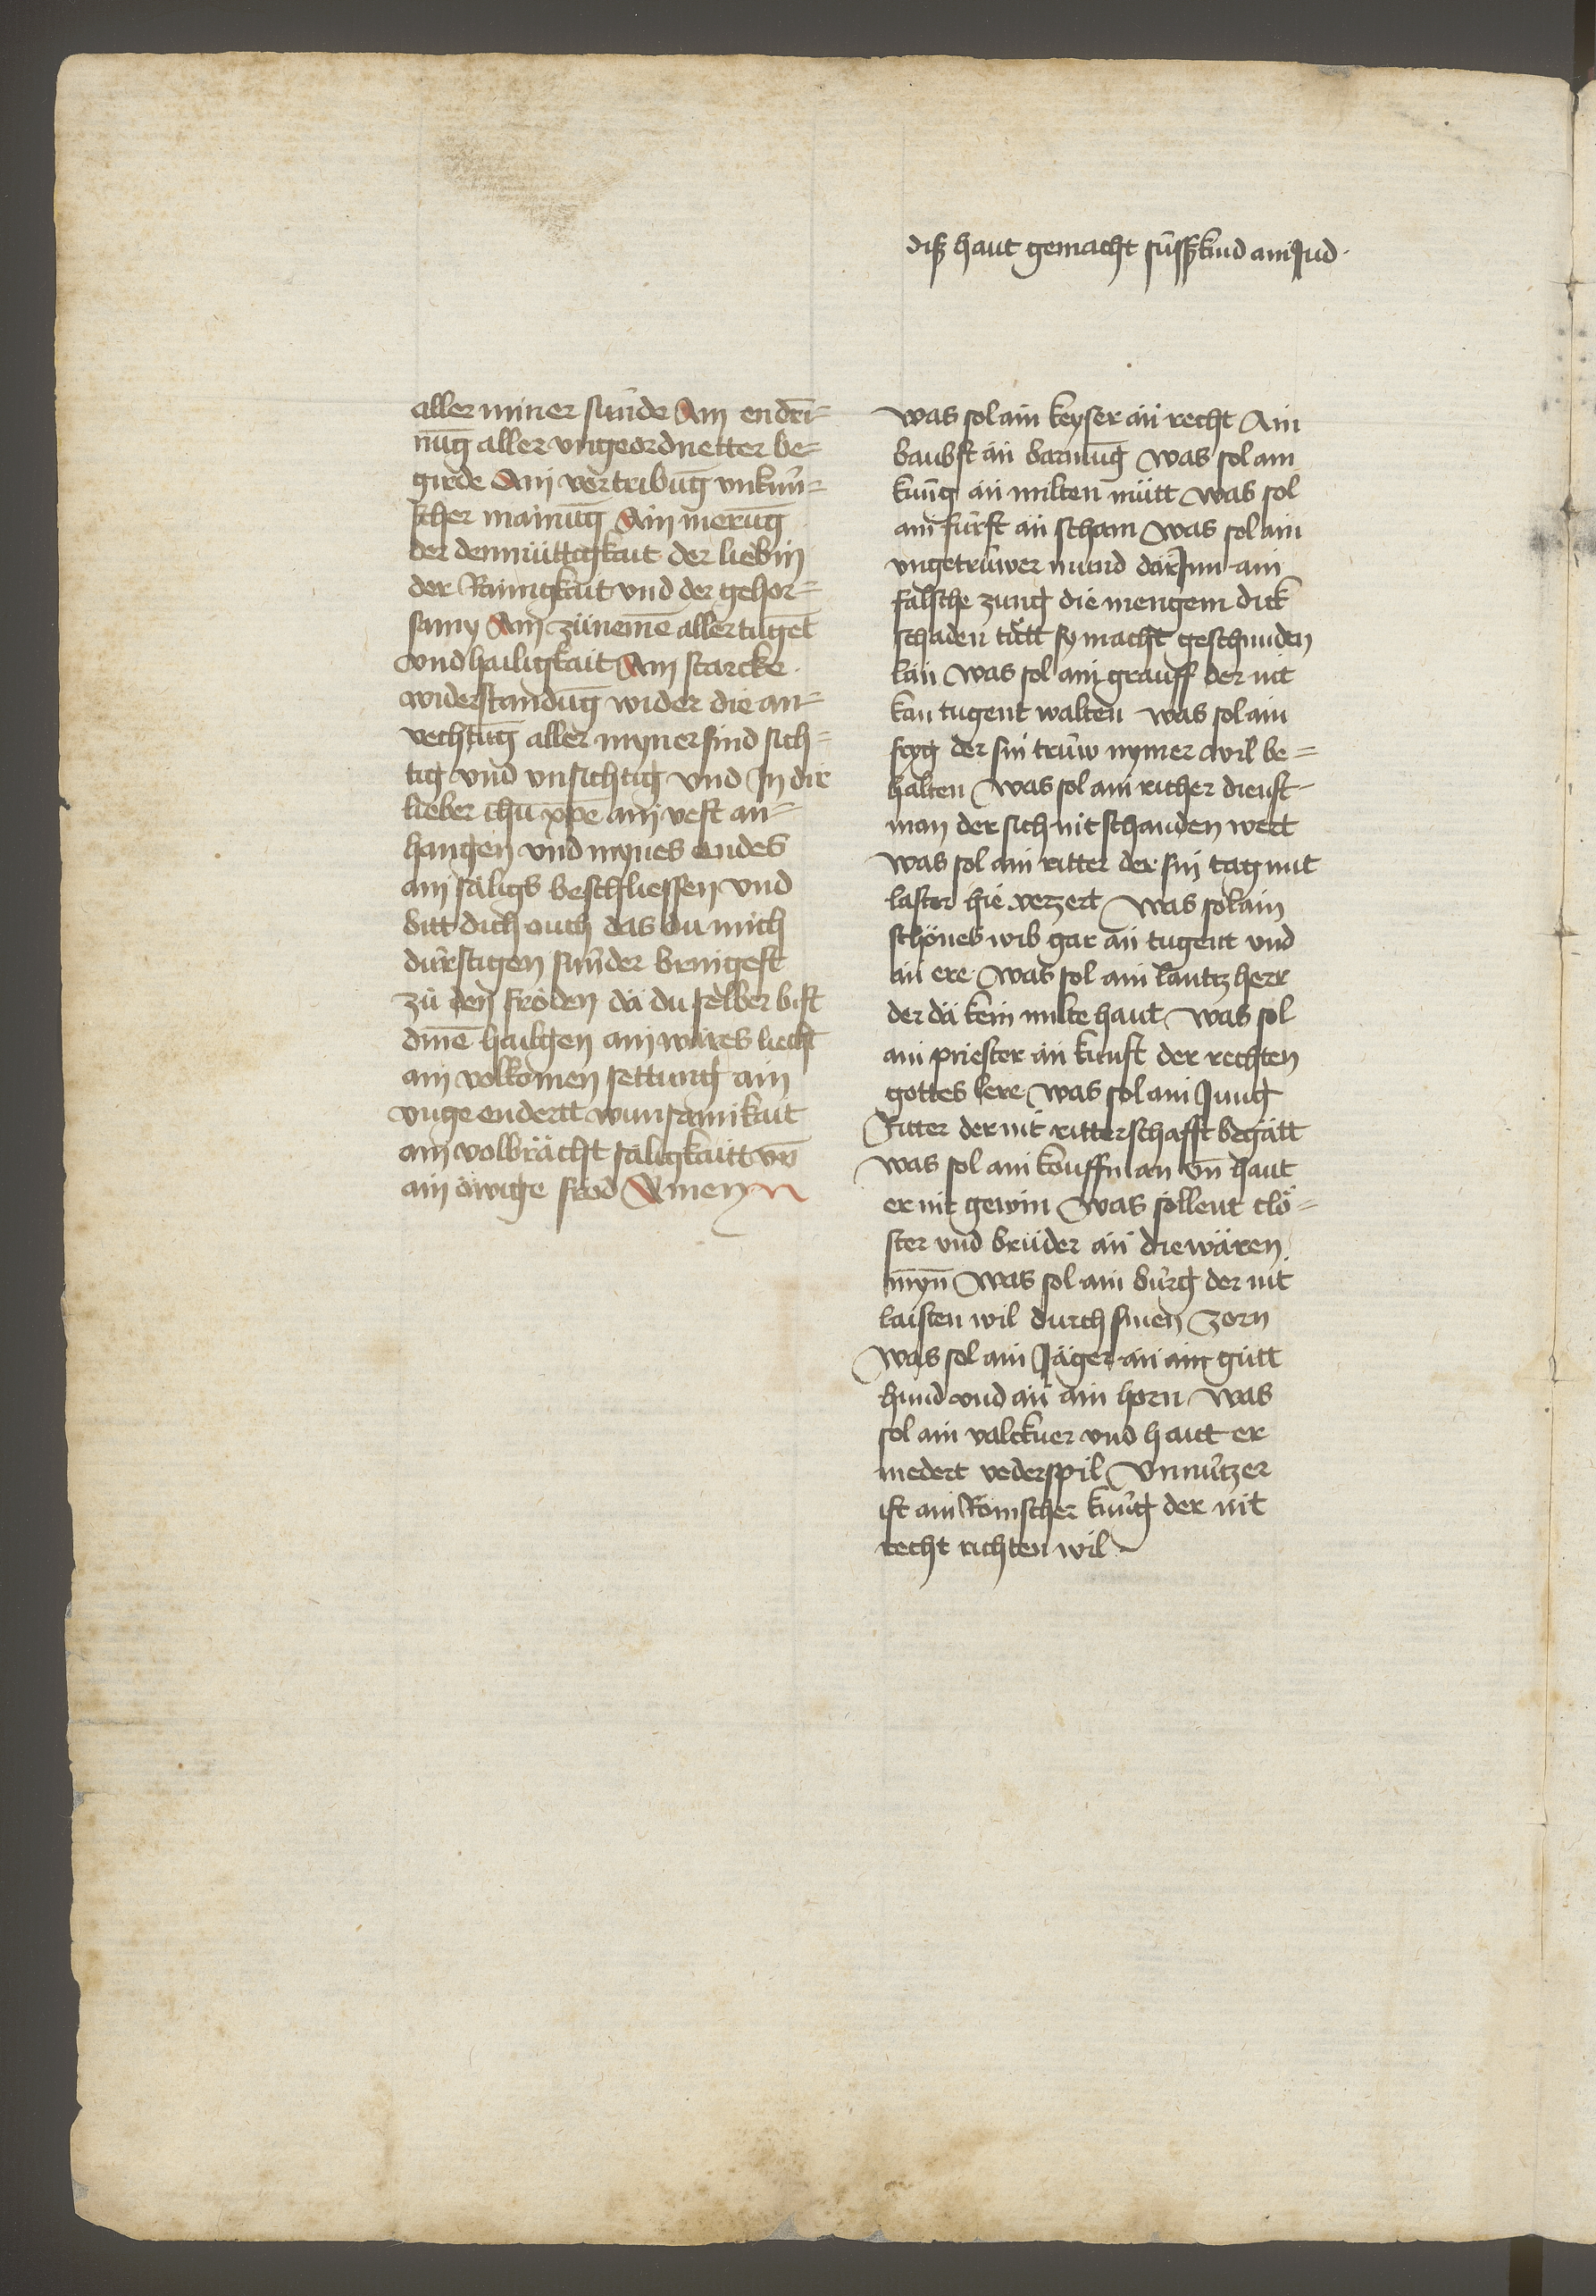 aller miner sünde Ain endri-
nūg aller vngeordnetter be-
girde Ain vertribūg vnkün-
scher mainūg Ain merūg
der demüttigkait der liebin
der Rainigkait vnd der gehor-
samy Ain zünemē aller tuget
vnd hailigkait Ain starcke
widerstandūg wider die an-
vechtūg aller myner find sich-
tig vnd vnsichtig vnd In dir
lieber ihū xpē ain vest an-
hangen vnd mynes endes
ain säligs beschliessen vnd
bitt dich ouch das du mich
dürstigen sünder bringest
zü den fröden dä du selber bist
dinē hailgen ain wäres liecht
ain volkomen settung ain
vnge endertt wunsamikait
ain volbrächt säligkaitt vn̄
ain öwige fröd Amen
diß haut gemacht süsskind ain Jud ·
Was sol ain keyser än recht Ain
baubst än barmūg Was sol ain
küng än milten mütt Was sol
ain fürst än scham Was sol ain
vngetrüwer mund dar Inn ain
falsche zung die mengem dick
schaden tütt sy macht geschniden
län Was sol ain grauff der nit
kan tugent walten Was sol ain
fryg der sin trüw nymer wil be-
halten Was sol ain richer dienst
man der sich nit schanden wert
Was sol ain ritter der sin tag mit
laster hie verzert Was sol ain
schönes wib gar än tugent vnd
än ere Was sol ain lantz herr
der dä kein milte haut Was sol
ain priester än kunst der rechten
gottes lere Was sol ain Jung
Ritter der nit ritterschafft begätt
Was sol ain kouffman vn̄ haut
er nit gewin Was söllent clö-
ster vnd brüder än die wären
myn̄ Was sol ain bürg der nit
laisten wil durch sinen zorn
Was sol ain Jäger än ain gütt
hund vnd än ain horn Was
sol ain valckner vnd hautt er
niedert vederspil Vnnützer
ist ain Römscher küng der nit
recht richten wil